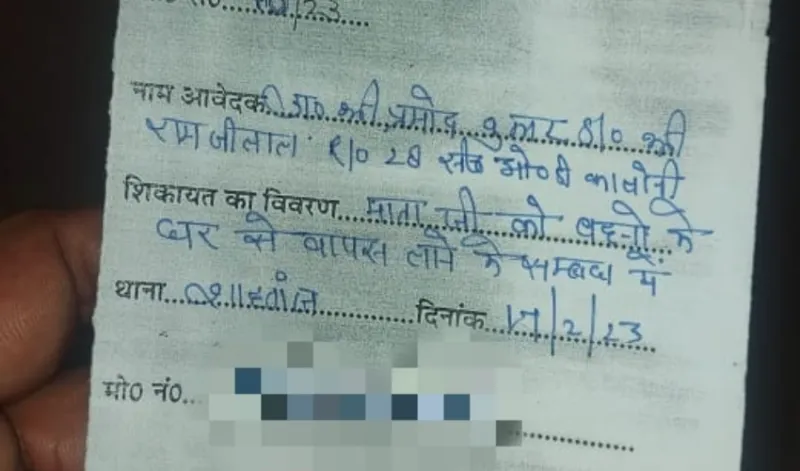 /23
नाम आवेदक डा० श्री प्रमोद कुमार S/o श्री
रामजीलाल R/o 28 सी० ओ० डी कालोनी
शिकायत का विवरण माता जी को बहनो के
घर से वापस लाने के सम्बन्ध में
थाना शाहगंज दिनांक 17/2/23
मो० नं०